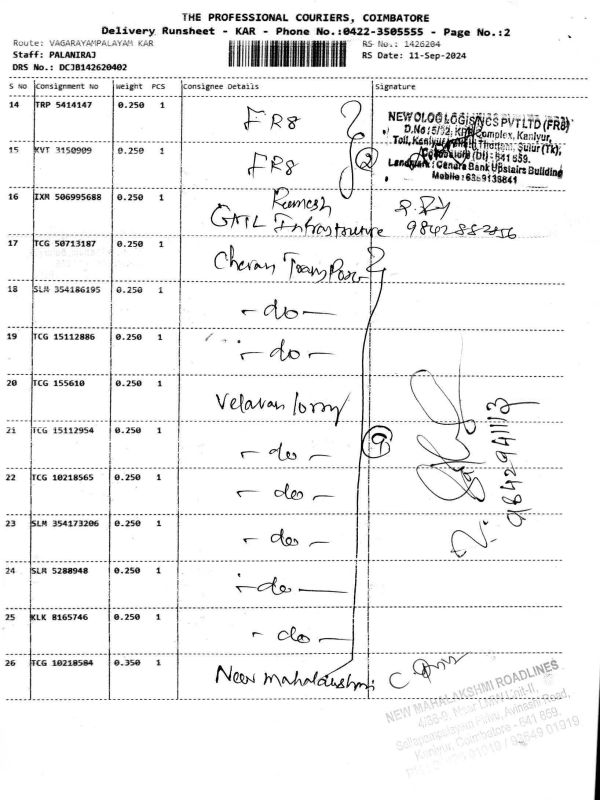 THE PROFESSIONAL COURIERS, COIMBATORE
Delivery Runsheet - KAR - Phone No.:0422-3505555 - Page No.:2
Route: VAGARAYAMPALAYAM KAR RS No.: 1426204
Staff: PALANIRAJ RS Date: 11-Sep-2024
DRS No.: DCJB142620402
S No Consignment No Weight PCS Consignee Details Signature
14 TRP 5414147 0.250 1 FR8
NEWOLOGLOGISTICS PVT LTD (FR8)
D.No:5/52, Complex, Kaniyur,
Toll, Sulur (Tk),
Coimbatore (Dt) - 641 659.
Landmark: Canara Bank Upstairs Building
Mobile:
15 KVT 3150909 0.250 1 FR8 2
16 IXM 506995688 0.250 1 Ramesh
GAIL Infrastructure
17 TCG 50713187 0.250 1 Cheran Transport
18 SLM 354186195 0.250 1 - do -
19 TCG 15112886 0.250 1 - do -
20 TCG 155610 0.250 1 Velavan lorry
21 TCG 15112954 0.250 1 - do - 9
9842941113
22 TCG 10218565 0.250 1 - do -
23 SLM 354173206 0.250 1 - do -
24 SLM 5288948 0.250 1 - do -
25 KLK 8165746 0.250 1 - do -
26 TCG 10218584 0.350 1 New mahalakshmi
NEW MAHALAKSHMI ROADLINES
4/88-9, Near LMW Unit-II,
Avinashi Road,
Kaniyur, Coimbatore - 641 659.